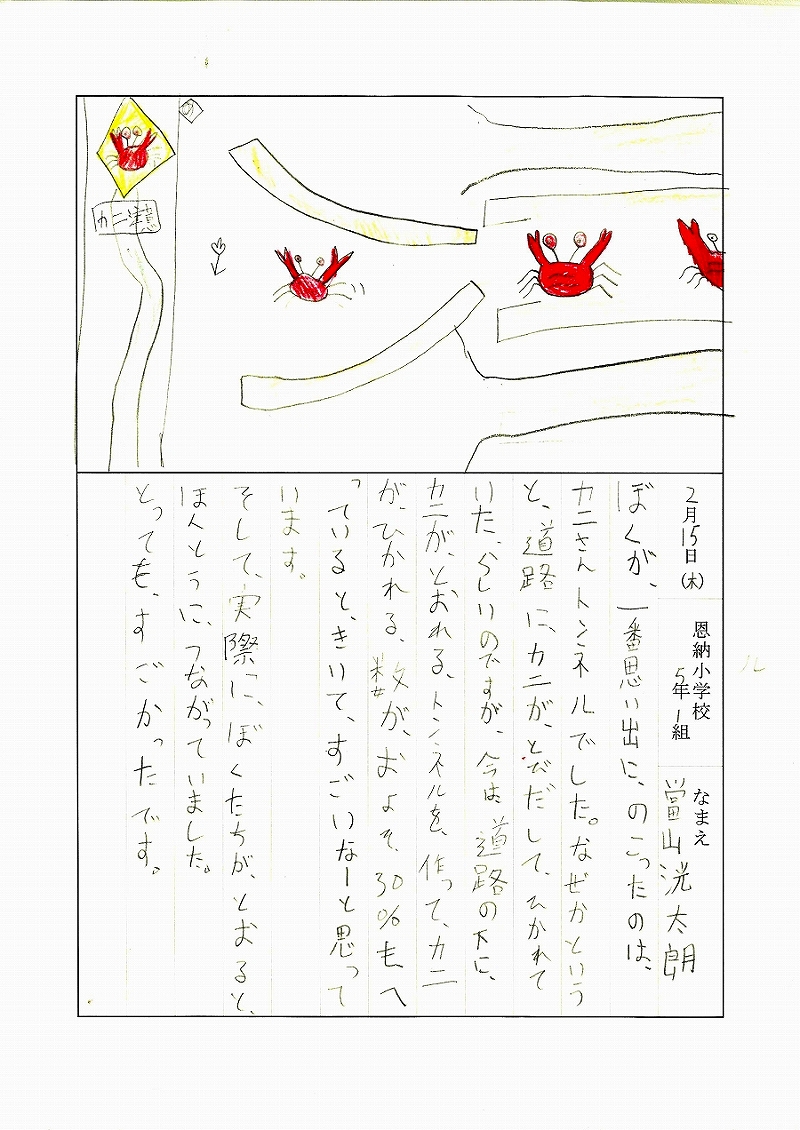 カニ注意
の
2月15日(木)
恩納小学校
5年1組
なまえ
當山洸太朗
ぼくが、一番思い出に、のこったのは、
カニさんトンネルでした。なぜかという
と、道路に、カニが、とびだして、ひかれて
いた、らしいのですが、今は、道路の下に、
カニが、とおれる、トンネルを、作って、カニ
が、ひかれる、数が、およそ、30%も、へ
っている、と、きいて、すごいなーと思って
います。
そして、実際に、ぼくたちが、とおると、
ほんとうに、つながっていました。
とっても、すごかったです。